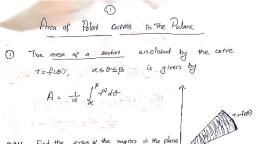 ①
Area of Polar curves in the Palane
① The area of a section enclosed by the curve
r=f(θ), α≤θ≤β is given by
A = 1/2 ∫ r² dθ
r=f(θ)
Find the area of the region in the plane